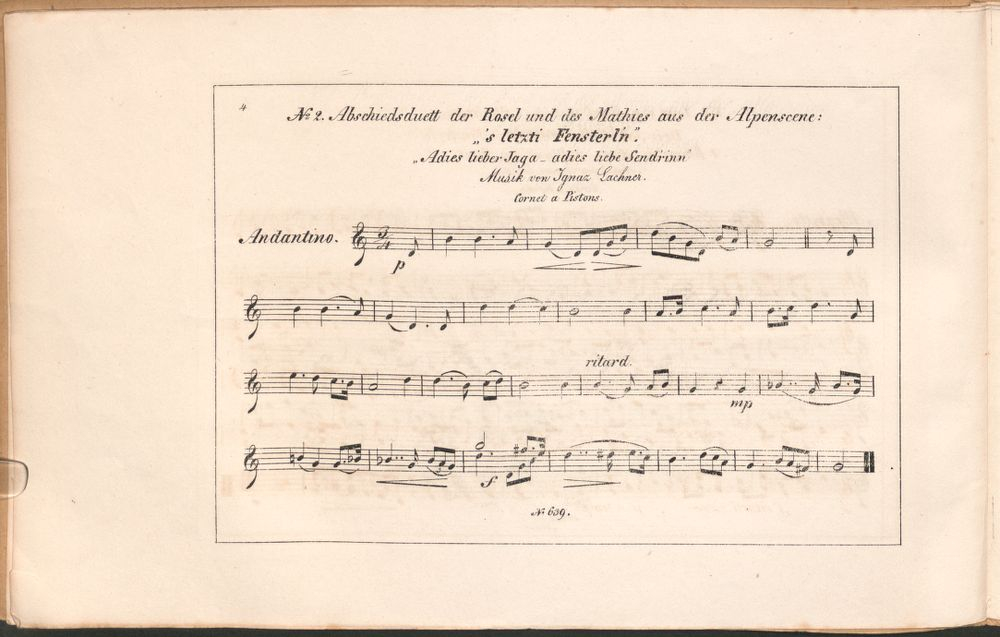 4
№ 2. Abschiedsduett der Rosel und des Mathies aus der Alpenscene:
„'s letzti Fensterl'n".
„Adies lieber Jaga _ adies liebe Sendrinn
Musik von Ignaz Lachner.
Cornet a Pistons.
Andantino.
3/4
p
ritard.
mp
f
№ 639.